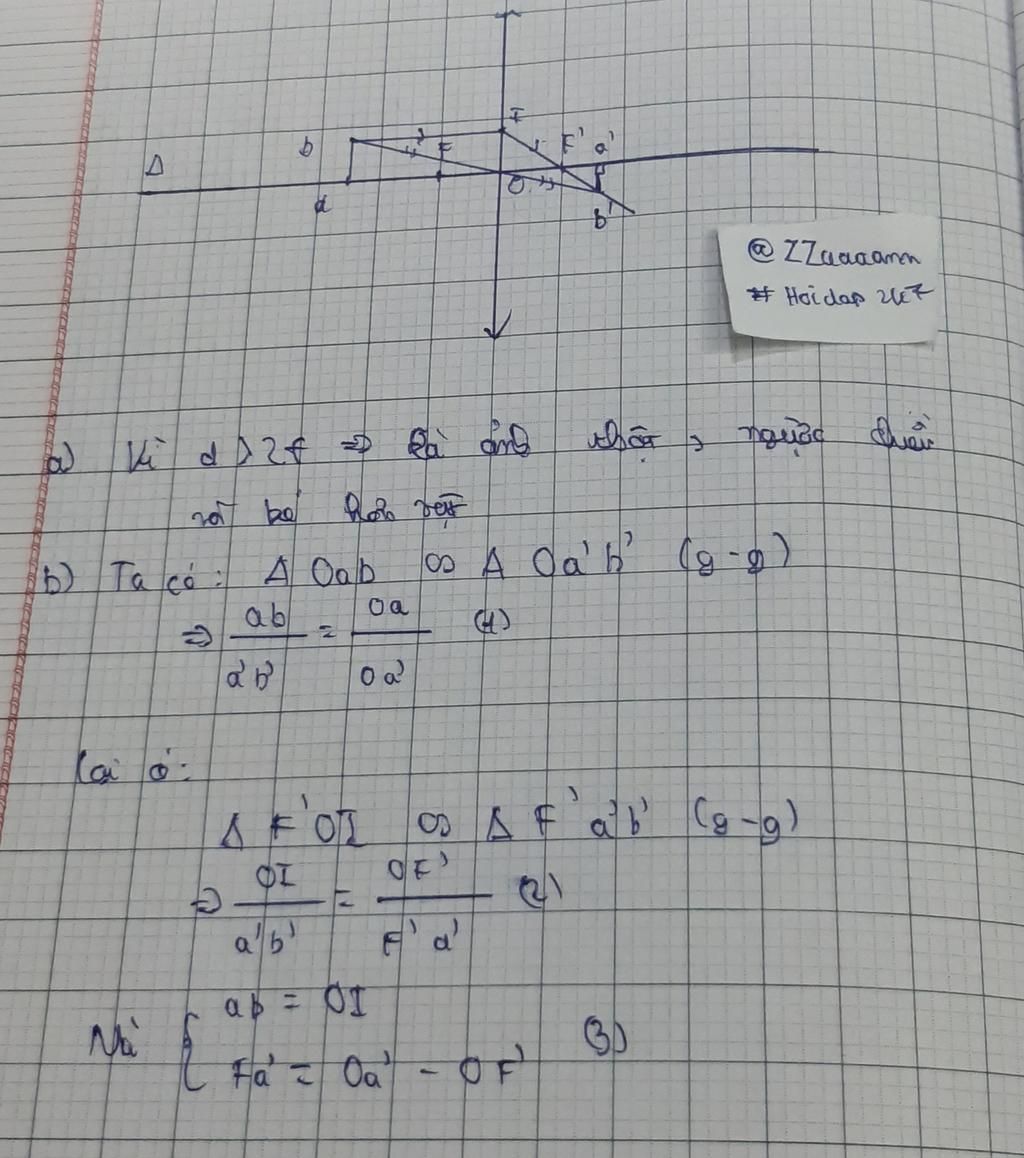 Δ b a F I O F' a' b'
@ZZaaaann
# Hoidap 247
a) Vì d > 2f ⇒ Là ảnh thật, ngược chiều
và bé hơn vật
b) Ta có: Δ Oab ∞ Δ Oa'b' (g-g)
⇒ ab/a'b' = Oa/Oa' (1)
Lại có:
Δ F'OI ∞ Δ F'a'b' (g-g)
⇒ OI/a'b' = OF'/F'a' (2)
Mà { ab = OI
Fa' = Oa' - OF' (3)